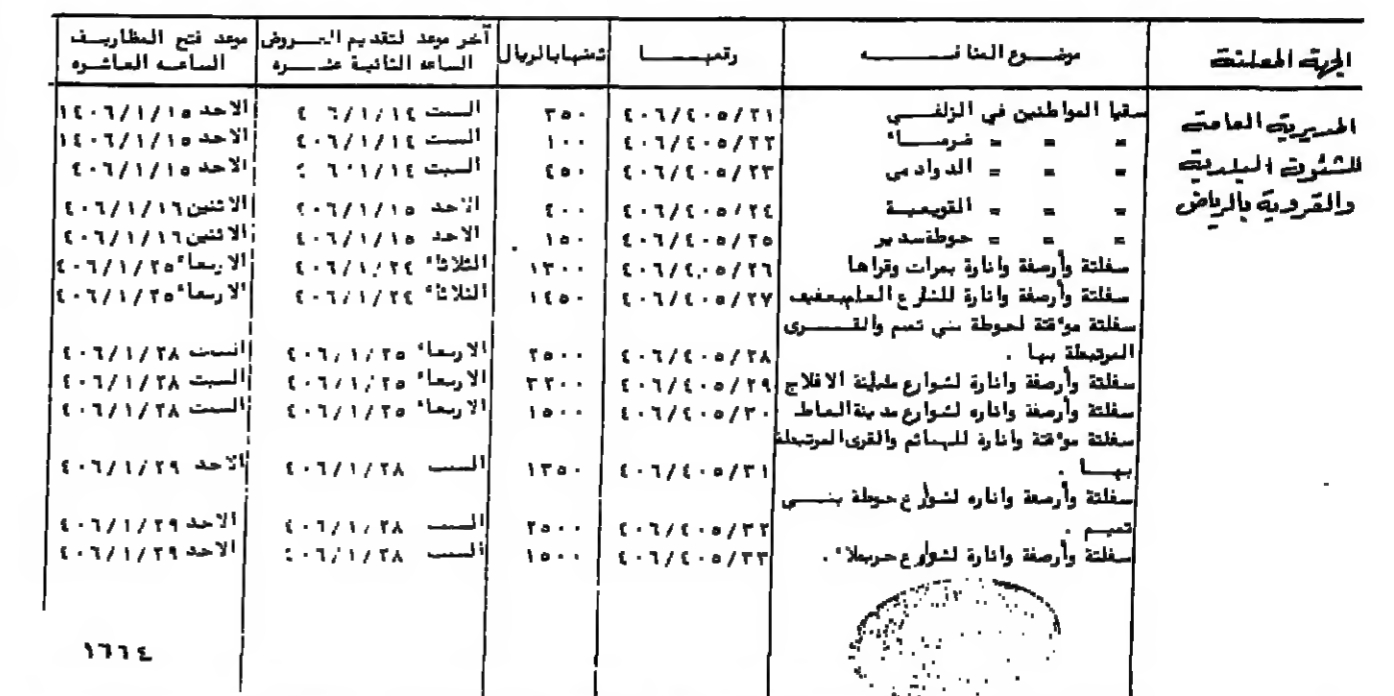 الجهة المعلنة | موضوع المنافسه | رقمها | ثمنها بالريال | آخر موعد لتقديم العروض الساعه الثانية عشره | موعد فتح المظاريف الساعه العاشره
المديرية العامة للشئون البلدية والقروية بالرياض
سقيا المواطنين في الزلفي | ٤٠٦/٤٠٥/٢١ | ٣٥٠ | السبت ١٤/١/٦ ٤ | الاحد ١٤٠٦/١/١٥
= = = ضرماء | ٤٠٦/٤٠٥/٢٢ | ١٠٠ | السبت ٤٠٦/١/١٤ | الاحد ١٤٠٦/١/١٥
= = = الدوادمي | ٤٠٦/٤٠٥/٢٣ | ٤٥٠ | السبت ٤٠٦/١/١٤ | الاحد ٤٠٦/١/١٥
= = = القويعية | ٤٠٦/٤٠٥/٢٤ | ٤٠٠ | الاحد ٤٠٦/١/١٥ | الاثنين ٤٠٦/١/١٦
= = = حوطة سدير | ٤٠٦/٤٠٥/٢٥ | ١٥٠ | الاحد ٤٠٦/١/١٥ | الاثنين ٤٠٦/١/١٦
سفلتة وأرصفة وانارة بمرات وقراها | ٤٠٦/٤٠٥/٢٦ | ١٣٠٠ | الثلاثاء ٤٠٦/١/٢٤ | الاربعاء ٤٠٦/١/٢٥
سفلتة وأرصفة وانارة للشارع العام بعفيف | ٤٠٦/٤٠٥/٢٧ | ١٤٥٠ | الثلاثاء ٤٠٦/١/٢٤ | الاربعاء ٤٠٦/١/٢٥
سفلتة موٴقتة لحوطة بني تميم والقـــرى
المرتبطة بها . | ٤٠٦/٤٠٥/٢٨ | ٢٥٠٠ | الاربعاء ٤٠٦/١/٢٥ | السبت ٤٠٦/١/٢٨
سفلتة وأرصفة وانارة لشوارع مدينة الافلاج | ٤٠٦/٤٠٥/٢٩ | ٣٢٠٠ | الاربعاء ٤٠٦/١/٢٥ | السبت ٤٠٦/١/٢٨
سفلتة وأرصفة واناره لشوارع مدينة الغاط | ٤٠٦/٤٠٥/٣٠ | ١٥٠٠ | الاربعاء ٤٠٦/١/٢٥ | السبت ٤٠٦/١/٢٨
سفلتة موٴقتة وانارة والقرى المرتبطة
بهـــا . | ٤٠٦/٤٠٥/٣١ | ١٣٥٠ | السبت ٤٠٦/١/٢٨ | الاحد ٤٠٦/١/٢٩
سفلتة وأرصفة واناره لشوارع حوطة بنـــي
تميم . | ٤٠٦/٤٠٥/٣٢ | ٢٥٠٠ | السبت ٤٠٦/١/٢٨ | الاحد ٤٠٦/١/٢٩
سفلتة وأرصفة وانارة لشوارع حريملاء . | ٤٠٦/٤٠٥/٣٣ | ١٥٠٠ | السبت ٤٠٦/١/٢٨ | الاحد ٤٠٦/١/٢٩
١٦٦٤